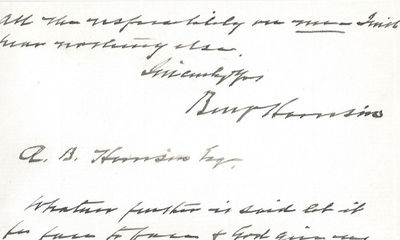 All the responsibility on me - I will
hear nothing else.
Sincerely Yrs
Benj Harrison
A. B. Harrison Esq.
Whatever further is said let it
be face to face & God give me